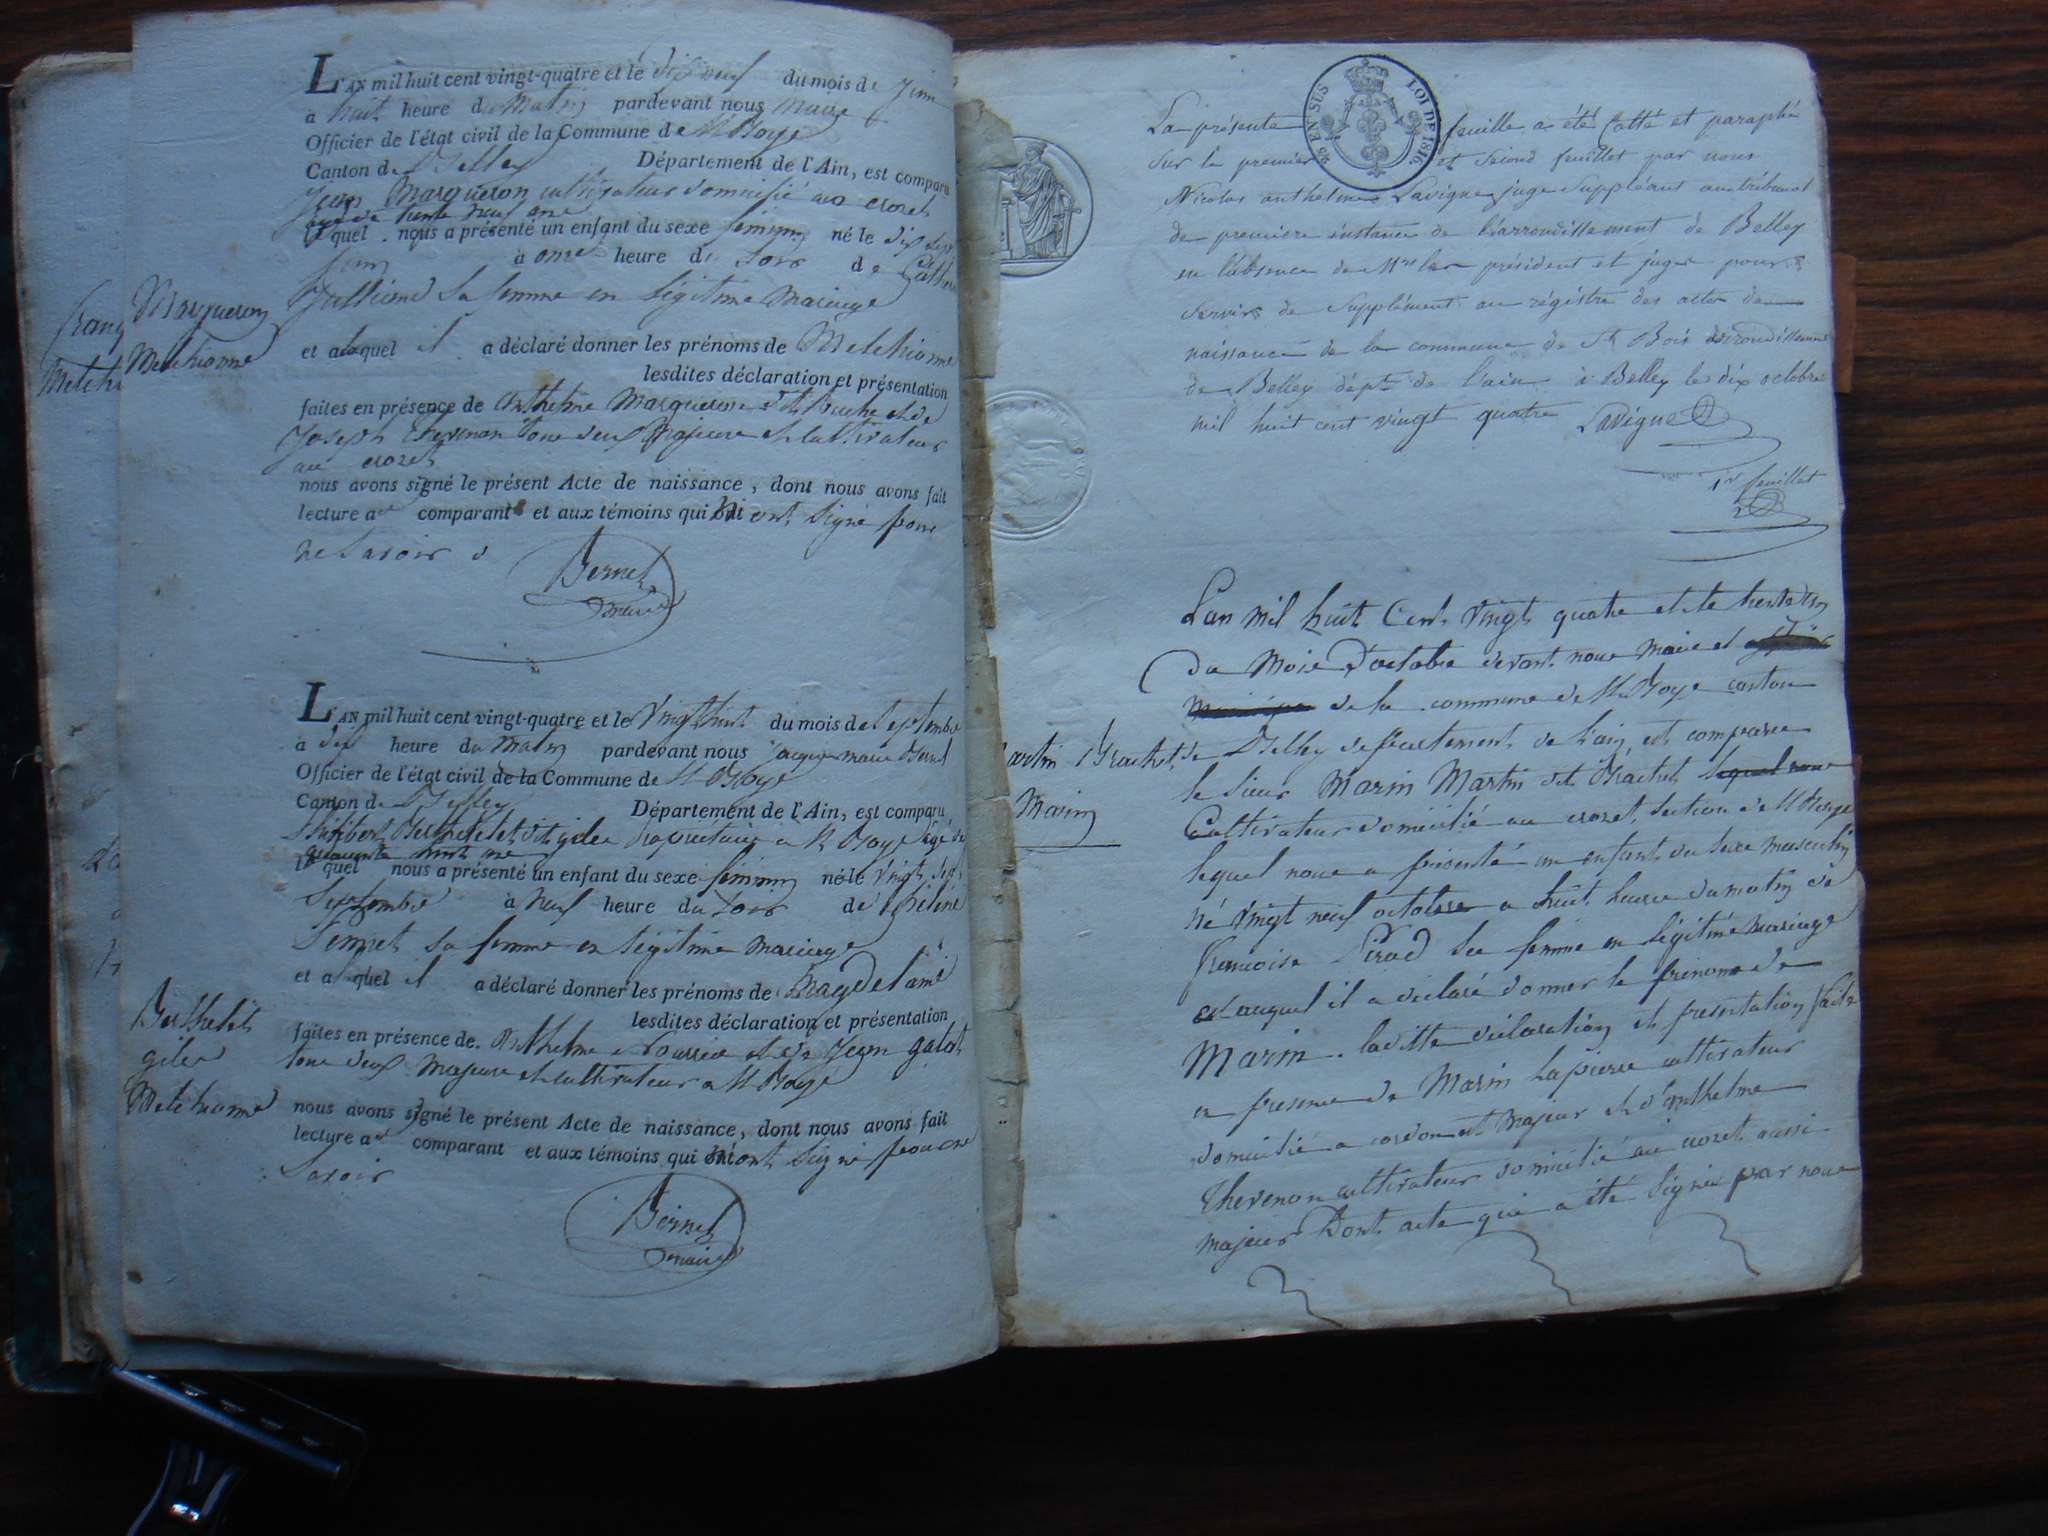 L'AN mil huit cent vingt-quatre et le dix neuf du mois de Juin
a huit heure du Matin pardevant nous Maire
Officier de l'état civil de la Commune de St Boye
Canton de Belley Département de l'Ain, est comparu
Jean Marqueron cultivateur domicilié au crozet
agé de trente neuf ans
lequel nous a présenté un enfant du sexe féminin né le dix sept
Juin à onze heure du soir de
sa femme en légitime Mariage
et auquel il a déclaré donner les prénoms de Melchionne
lesdites déclaration et présentation
faites en présence de Anthelme Marqueron dit et de
Joseph Thevenon tous deux Majeurs et cultivateurs
au crozet
nous avons signé le présent Acte de naissance, dont nous avons fait
lecture au comparant et aux témoins qui n'ont signé pour
ne savoir
Bernet
maire
Marqueron
Melchionne
L'AN mil huit cent vingt-quatre et le vingt huit du mois de septembre
à dix heure du Matin pardevant nous Jacques marie Bernet
Officier de l'état civil de la Commune de St Boye
Canton de Belley Département de l'Ain, est comparu
Philibert Berthelet dit gilet propriétaire à St Boye agé de
quarante huit ans
lequel nous a présenté un enfant du sexe féminin né le vingt sept
Septembre à Neuf heure du soir de hélène
Pernet sa femme en légitime mariage
et auquel il a déclaré donner les prénoms de Magdelaine
lesdites déclaration et présentation
faites en présence de Anthelme et de Jean galot
tous deux Majeurs et cultivateurs a St Boye
nous avons signé le présent Acte de naissance, dont nous avons fait
lecture au comparant et aux témoins qui n'ont signé pour ne
savoir
Bernet
maire
Berthelet
gilet
Melchionne
25 EN SUS
LOI DE 1816.
La présente feuille a été Cotté et paraphé
sur le premier et second feuillet par nous
Nicolas anthelme Lavigne juge Suppléant au tribunal
de premiere instance de l'arrondissement de Belley
en l'absence de Mrs les président et juges pour
servir de Supplément au régistre des actes de
naissance de la commune de St Bois arrondissement
de Belley dépt de l'ain à Belley le dix octobre
mil huit cent vingt quatre Lavigne
1er feuillet
L'an Mil huit Cent Vingt quatre et le trente un
du Mois d'octobre devant nous Maire et
de la commune de St Boye canton
de Belley département de l'ain, est comparu
le sieur Marin Martin dit Brachet lequel nous
Cultivateur domicilié au crozet, section de St Boye
lequel nous a présenté un enfant du sexe masculin
né Vingt neuf octobre a huit heure du matin de
francoise Pirod sa femme en légitime mariage
et auquel il a déclaré donner le prénom de
Marin. la ditte déclaration et presentation faite
en presence de Marin Lapierre cultivateur
domicilié a cordon et Majeur et d'Anthelme
Thevenon cultivateur domicilié au crozet aussi
majeur Dont acte qui a été signé par nous
Martin Brachet
Marin